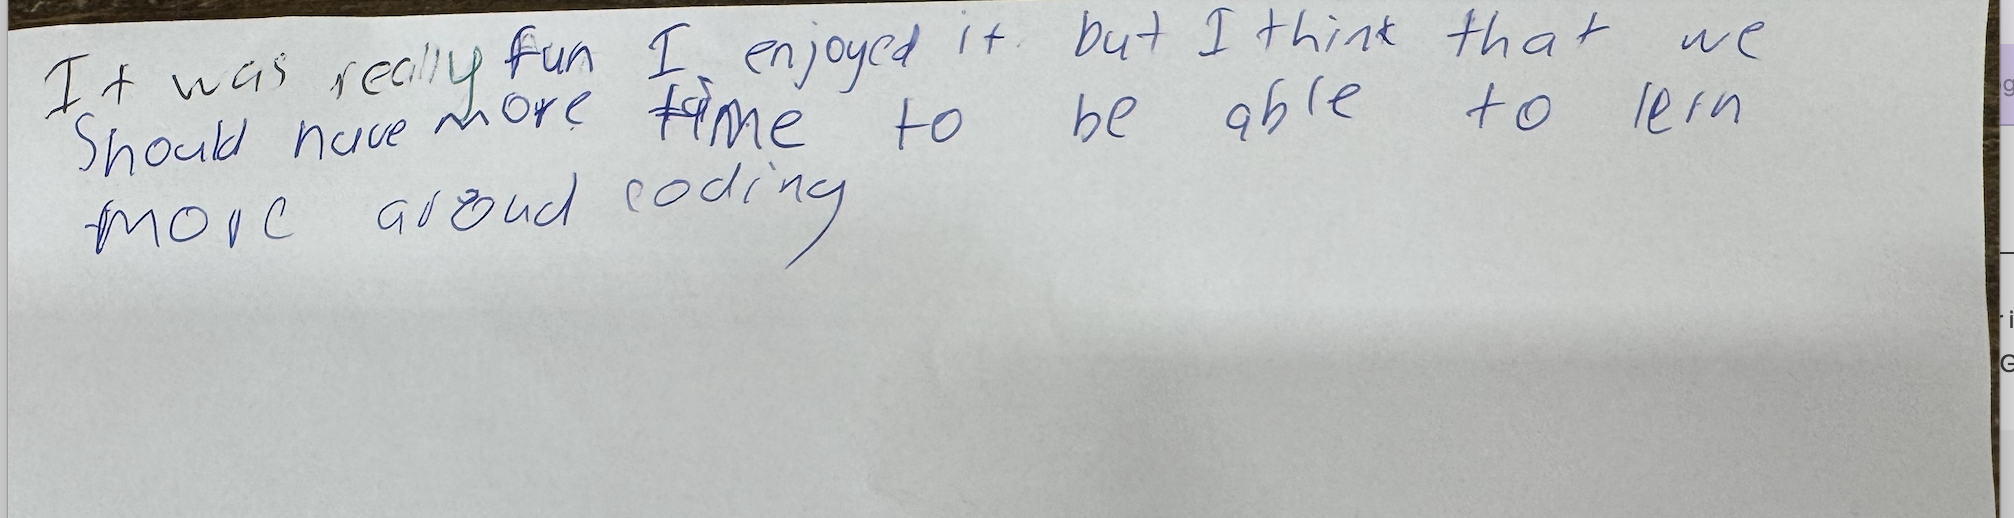 It was really fun I enjoyed it but I think that we
Should have more time to be able to lern
more aroud coding